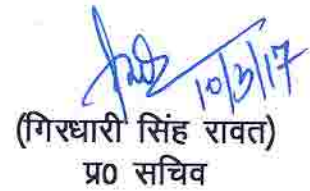 10/3/17
(गिरधारी सिंह रावत)
प्र0 सचिव